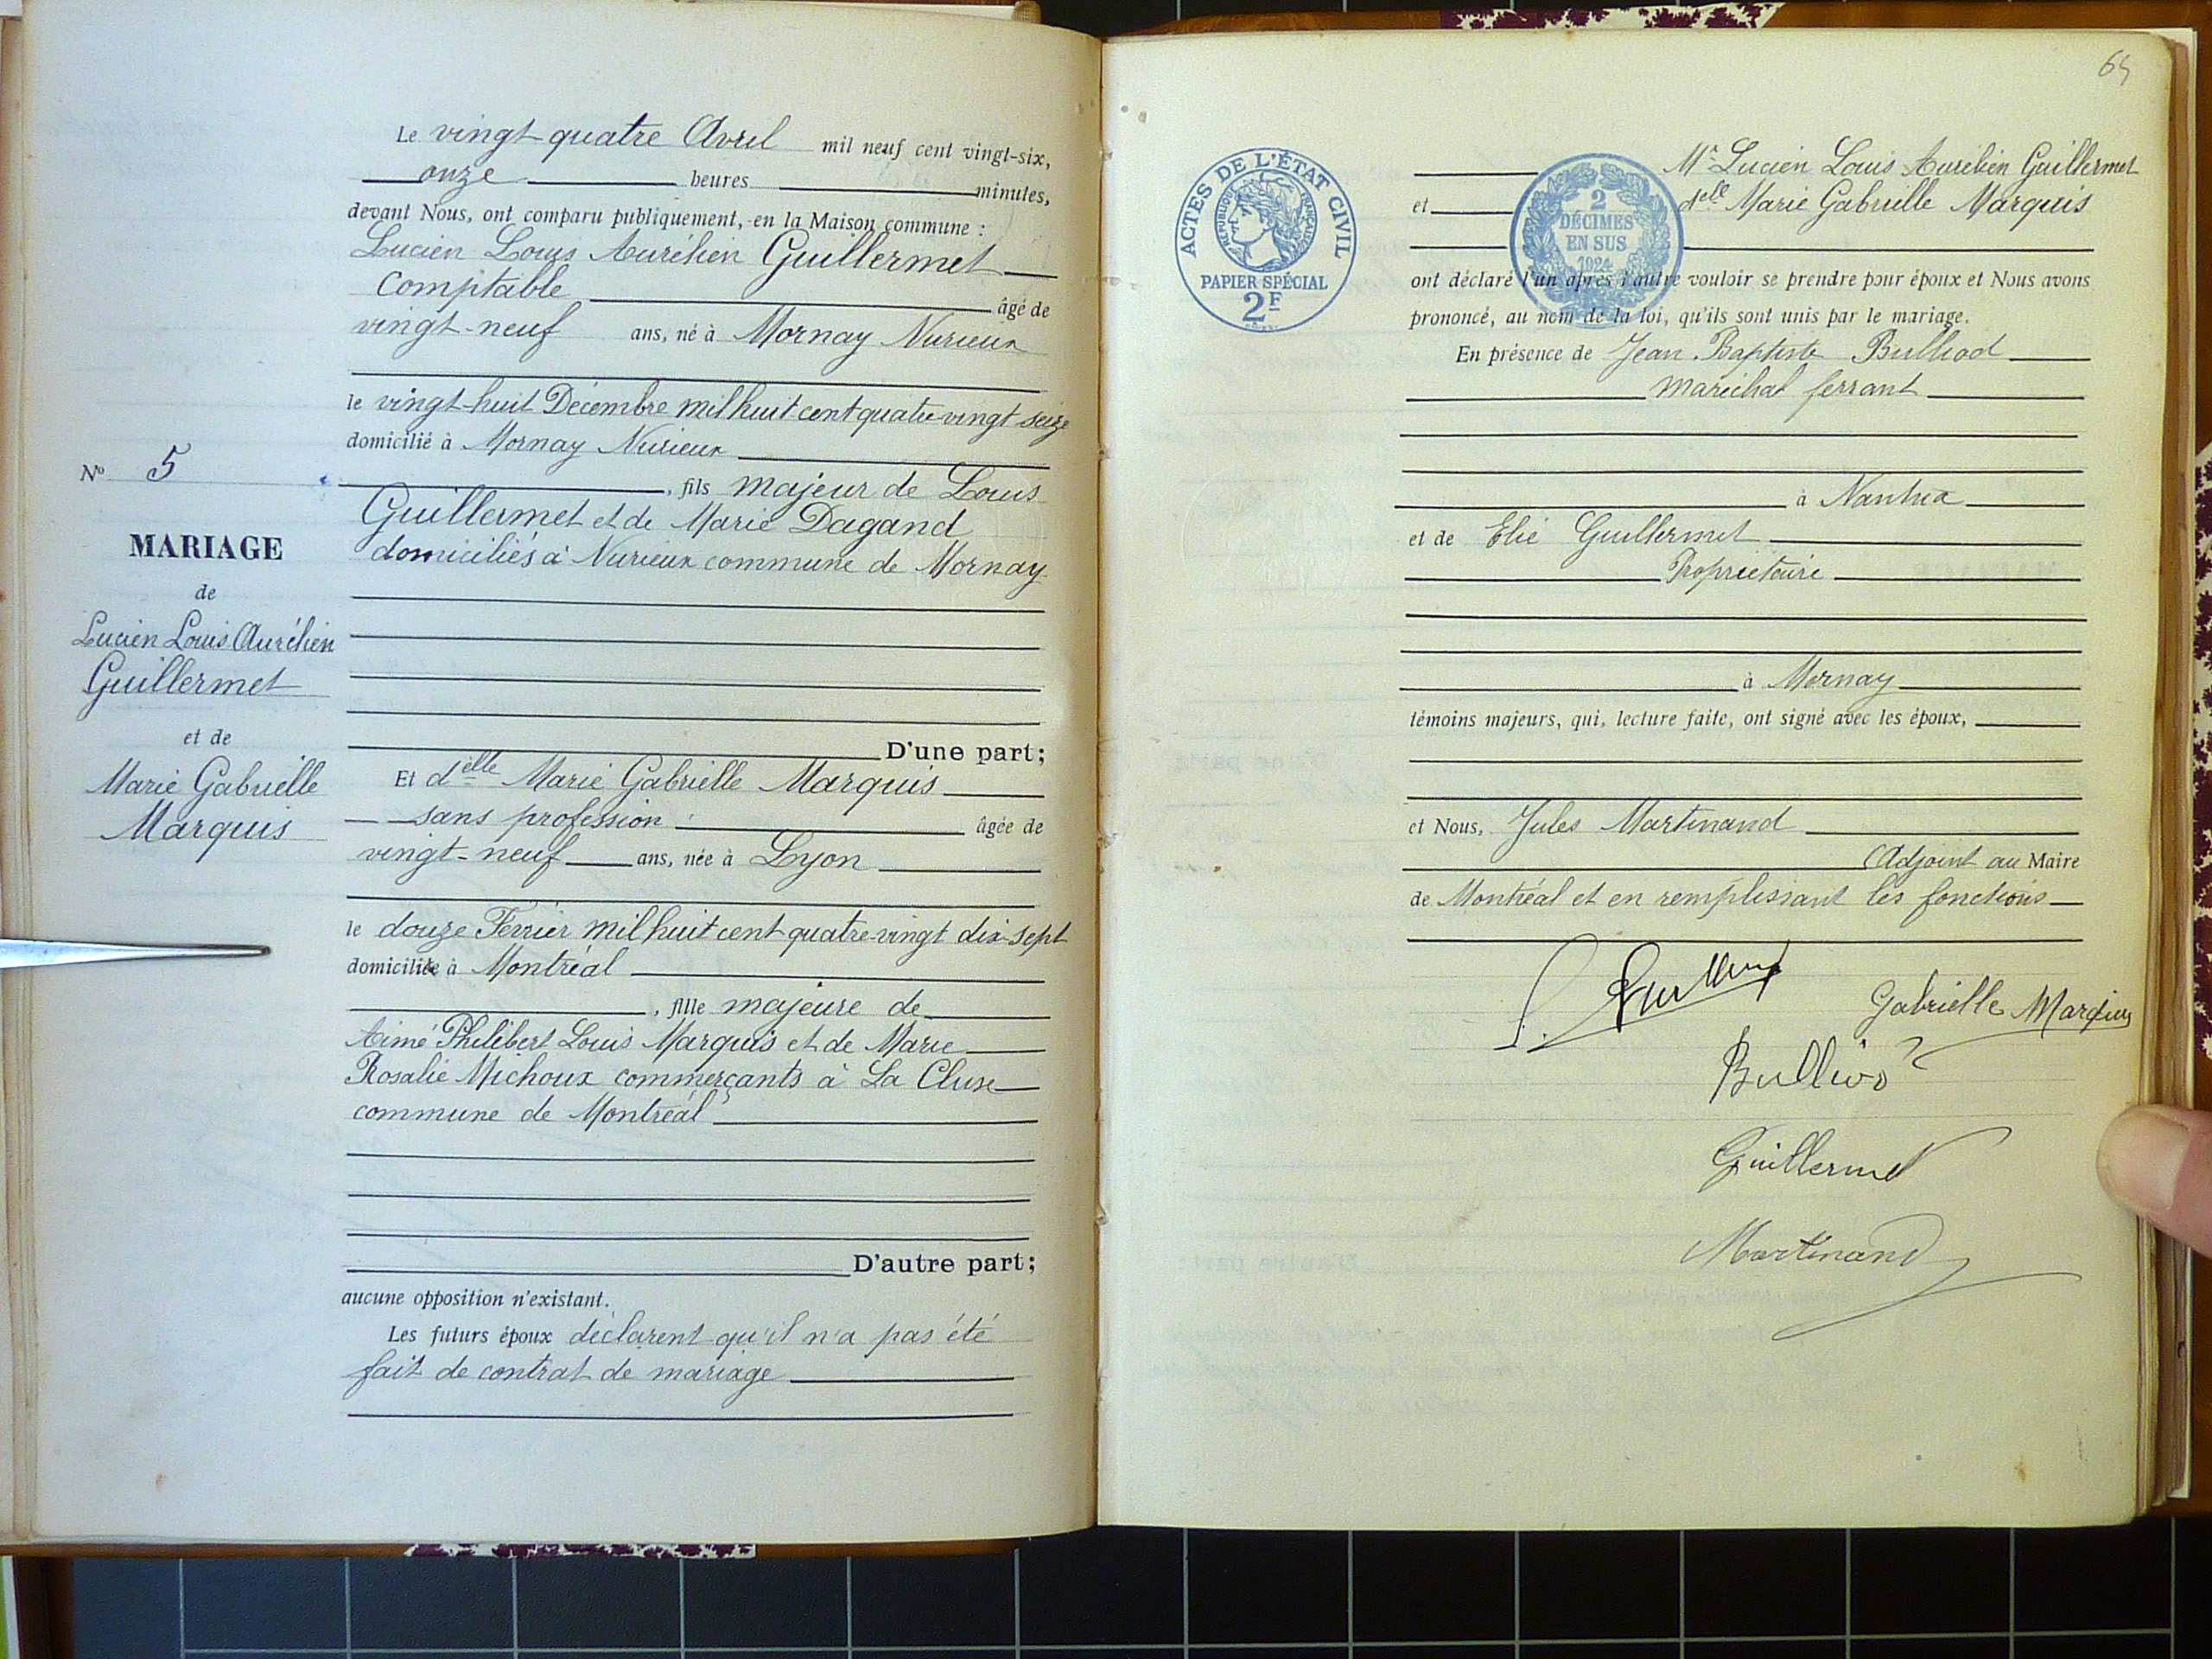 Le vingt-quatre Avril mil neuf cent vingt-six,
onze heures minutes,
devant Nous, ont comparu publiquement, en la Maison commune :
Lucien Louis Aurélien Guillermet
Comptable âgé de
vingt-neuf ans, né à Mornay Nurieux
le vingt-huit Décembre mil huit cent quatre-vingt seize
domicilié à Mornay Nurieux
, fils majeur de Louis
Guillermet et de Marie Dagand
domiciliés à Nurieux commune de Mornay
D'une part;
Et delle Marie Gabrielle Marquis
sans profession âgée de
vingt-neuf ans, née à Lyon
le douze Fevrier mil huit cent quatre-vingt dix-sept
domiciliée à Montréal
, fille majeure de
Aimé Philibert Louis Marquis et de Marie
Rosalie Michoux commerçants à La Cluse
commune de Montréal
D'autre part;
aucune opposition n'existant.
Les futurs époux déclarent qu'il n'a pas été
fait de contrat de mariage
No 5
MARIAGE
de
Lucien Louis Aurélien
Guillermet
et de
Marie Gabrielle
Marquis
ACTES DE L'ÉTAT CIVIL
RÉPUBLIQUE FRANÇAISE
PAPIER SPÉCIAL
2F
2
DÉCIMES
EN SUS
1924
Mr Lucien Louis Aurélien Guillermet
et delle Marie Gabrielle Marquis
ont déclaré l'un après l'autre vouloir se prendre pour époux et Nous avons
prononcé, au nom de la loi, qu'ils sont unis par le mariage.
En présence de Jean-Baptiste Bulliod
maréchal ferrant
à Nantua
et de Elie Guillermet
Propriétaire
à Mornay
témoins majeurs, qui, lecture faite, ont signé avec les époux,
et Nous, Jules Martinand
Adjoint au Maire
de Montréal et en remplissant les fonctions
Gabrielle Marquis
Bulliod
Guillermet
Martinand